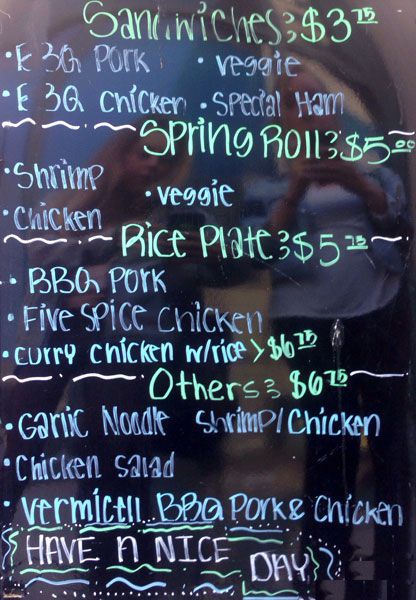 Sandwiches: $3 75
• BBQ Pork • veggie
• BBQ Chicken • Special Ham
Spring Roll: $5 00
• Shrimp
• veggie
• Chicken
Rice Plate: $5 75
• BBQ Pork
• Five Spice Chicken
• curry chicken w/rice > $6 75
Others: $6 75
• Garlic Noodle Shrimp/Chicken
• Chicken salad
• vermicell BBQ Pork & Chicken
HAVE A NICE DAY